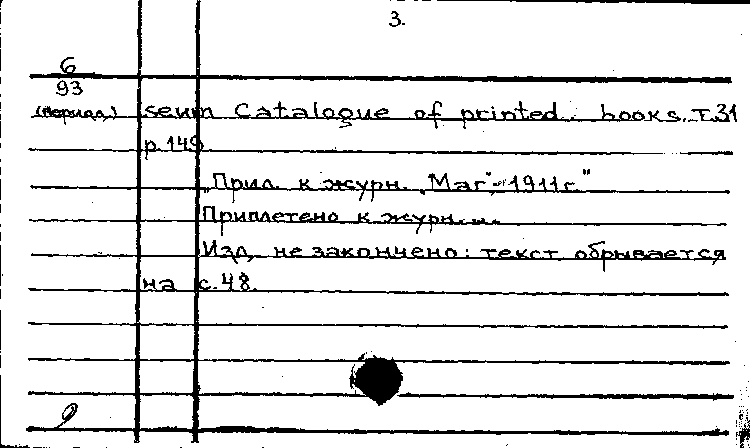 3.
6
93
(период.) seum Catalogue of printed books. Т.31
p.149.
„Прил. к журн. „Маг“-1911г."
Приплетено к журн....
Изд. не закончено: текст обрывается
на с.48.